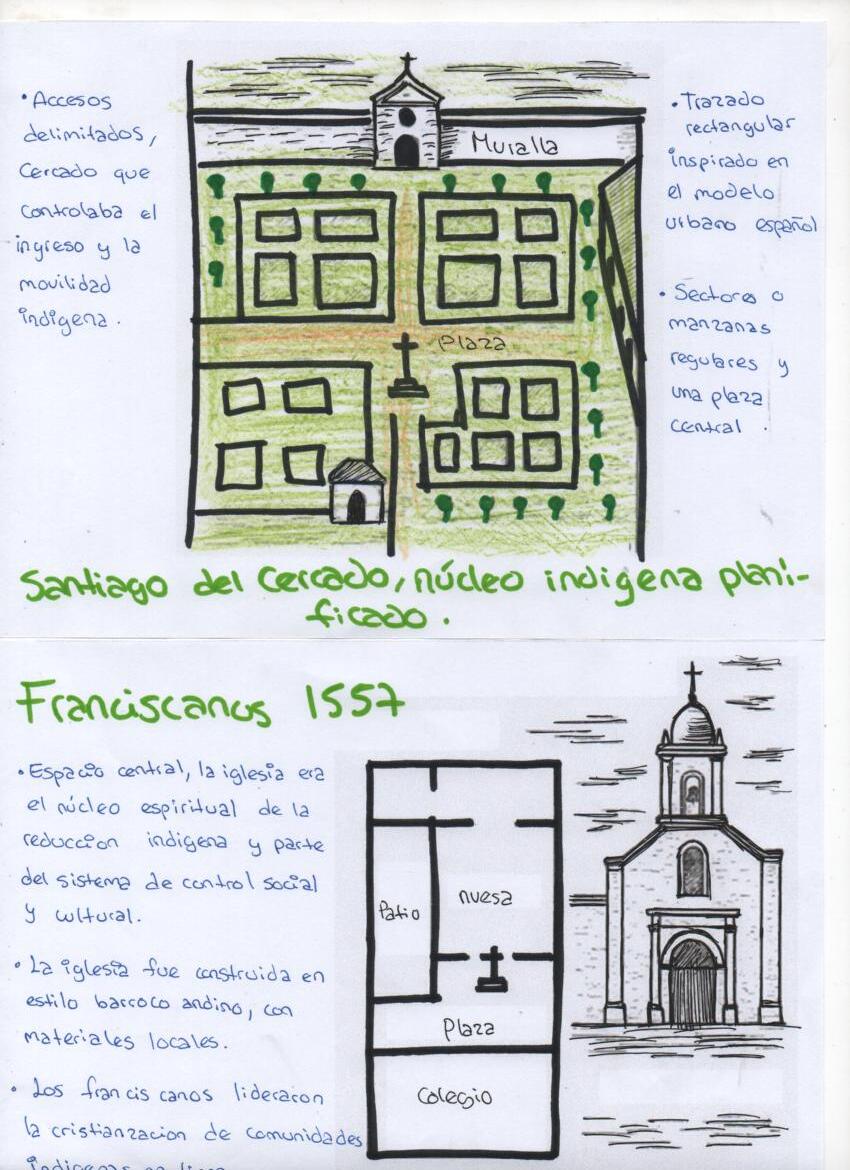 • Accesos
delimitados,
cercado que
controlaba el
ingreso y la
movilidad
indigena.
Muralla
Plaza
• Trazado
rectangular
inspirado en
el modelo
urbano español
• Sectores o
manzanas
regulares y
una plaza
central.
Santiago del Cercado, núcleo indigena plani-
ficado.
Franciscanos 1557
• Espacio central, la iglesia era
el núcleo espiritual de la
reduccion indigena y parte
del sistema de control social
y cultural.
• La iglesia fue construida en
estilo barroco andino, con
materiales locales.
• Los francis canos lideraron
la cristianzacion de comunidades
indigenas en
Patio
nuesa
Plaza
Colegio